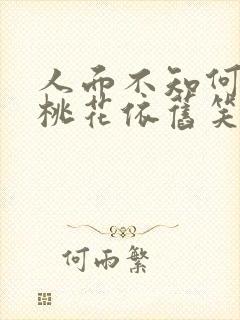 人而不知何
桃花依舊笑
何雨繁